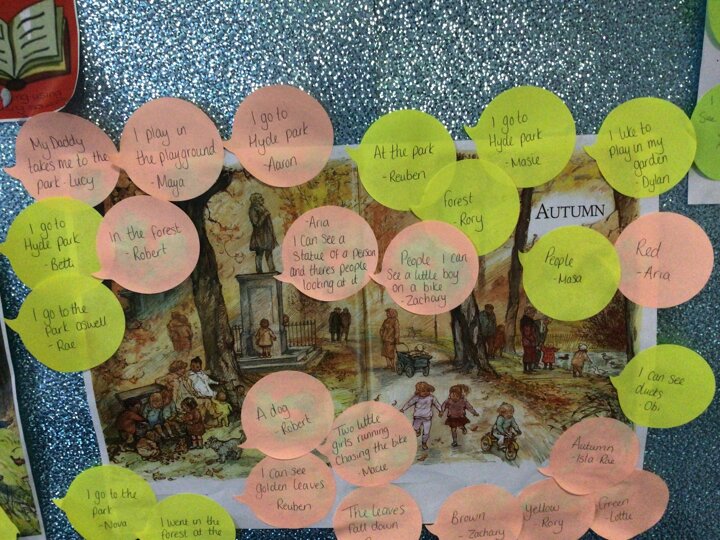 My Daddy
takes me to the
park - Lucy
I play in
the playground
- Maya
I go to
Hyde park
- Aaron
At the park
- Reuben
I go to
Hyde park
- Masie
I like to
play in my
garden
- Dylan
I go to
Hyde Park
- Betti
in the forest
- Robert
- Aria
I can see a
statue of a person
and theres people
looking at it
People I can
see a little boy
on a bike
- Zachary
forest
- Rory
AUTUMN
People
- Masa
Red
- Aria
I go to the
park aswell
- Rae
I can see
ducks
- Obi
A dog
- Robert
Two little
girls running
chasing the bike
- Macie
I can see
golden leaves
Reuben
Autumn
- Isla Rae
I go to the
park
- Nova
I went in the
forest at the
The leaves
fall down
Brown
- Zachary
Yellow
- Rory
Green
- Lottie